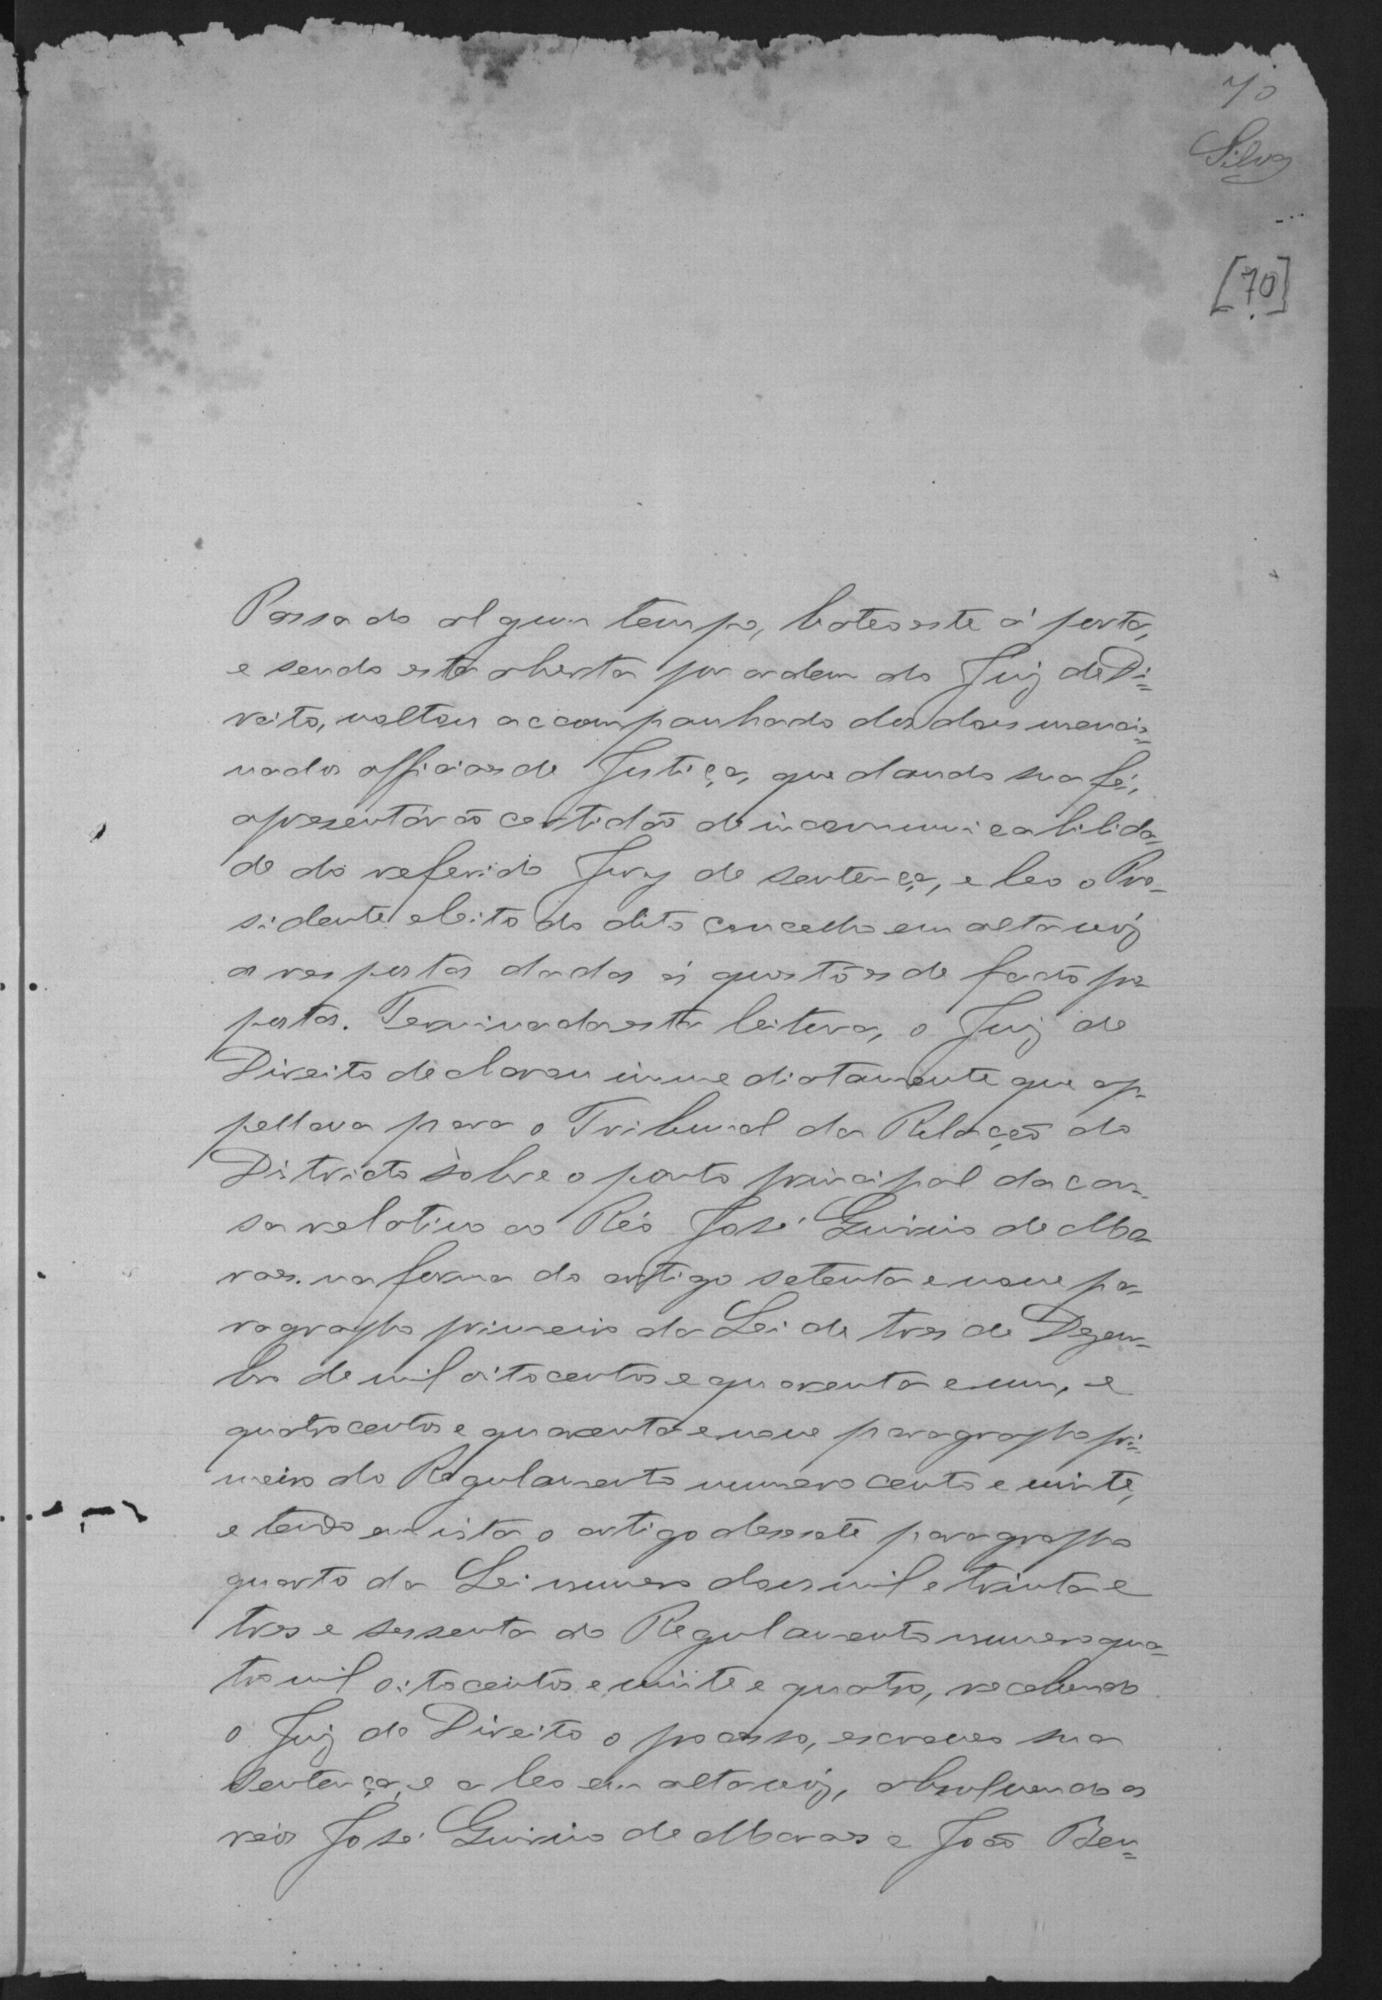 70
Silva
[70]
Passado algum tempo, bateo este á porta,
e sendo esta aberta por ordem do Juiz de Di=
reito, voltou accompanhado dos dous mencio=
nados officiaes de Justiça, que dando sua fé,
apresentárão certidão de incommunicabilida-
de do referido Jury de sentença, e leo o Pre-
sidente eleito do dito concelho em alta voz
as respostas dadas ás questões de facto pro
postas. Terminada esta leitura, o Juiz de
Direito declarou immediatamente que ap-
pellava para o Tribunal da Relação do
Ditricto sobre o ponto principal da cau-
sa relativo ao Réo José de Mo
raes. na forma do artigo setenta e nove pa-
ragrapho primeiro da Lei de tres de Dezem-
bro de mil oitocentos e quarenta e um, e
quatrocentos e quarenta e nove paragrapho pri=
meiro do Regulamento numero cento e vinte,
e tendo em vista o artigo desesete paragrapho
quarto da Lei numero dous mil e trinta e
tres e sessenta do Regulamento numero qua-
tro mil oitocentos e vinte e quatro, recebendo
o Juiz de Direito o processo, escreveo sua
sentença, e a leo em alta voz, absolvendo os
réos José de Moraes e João Ben=